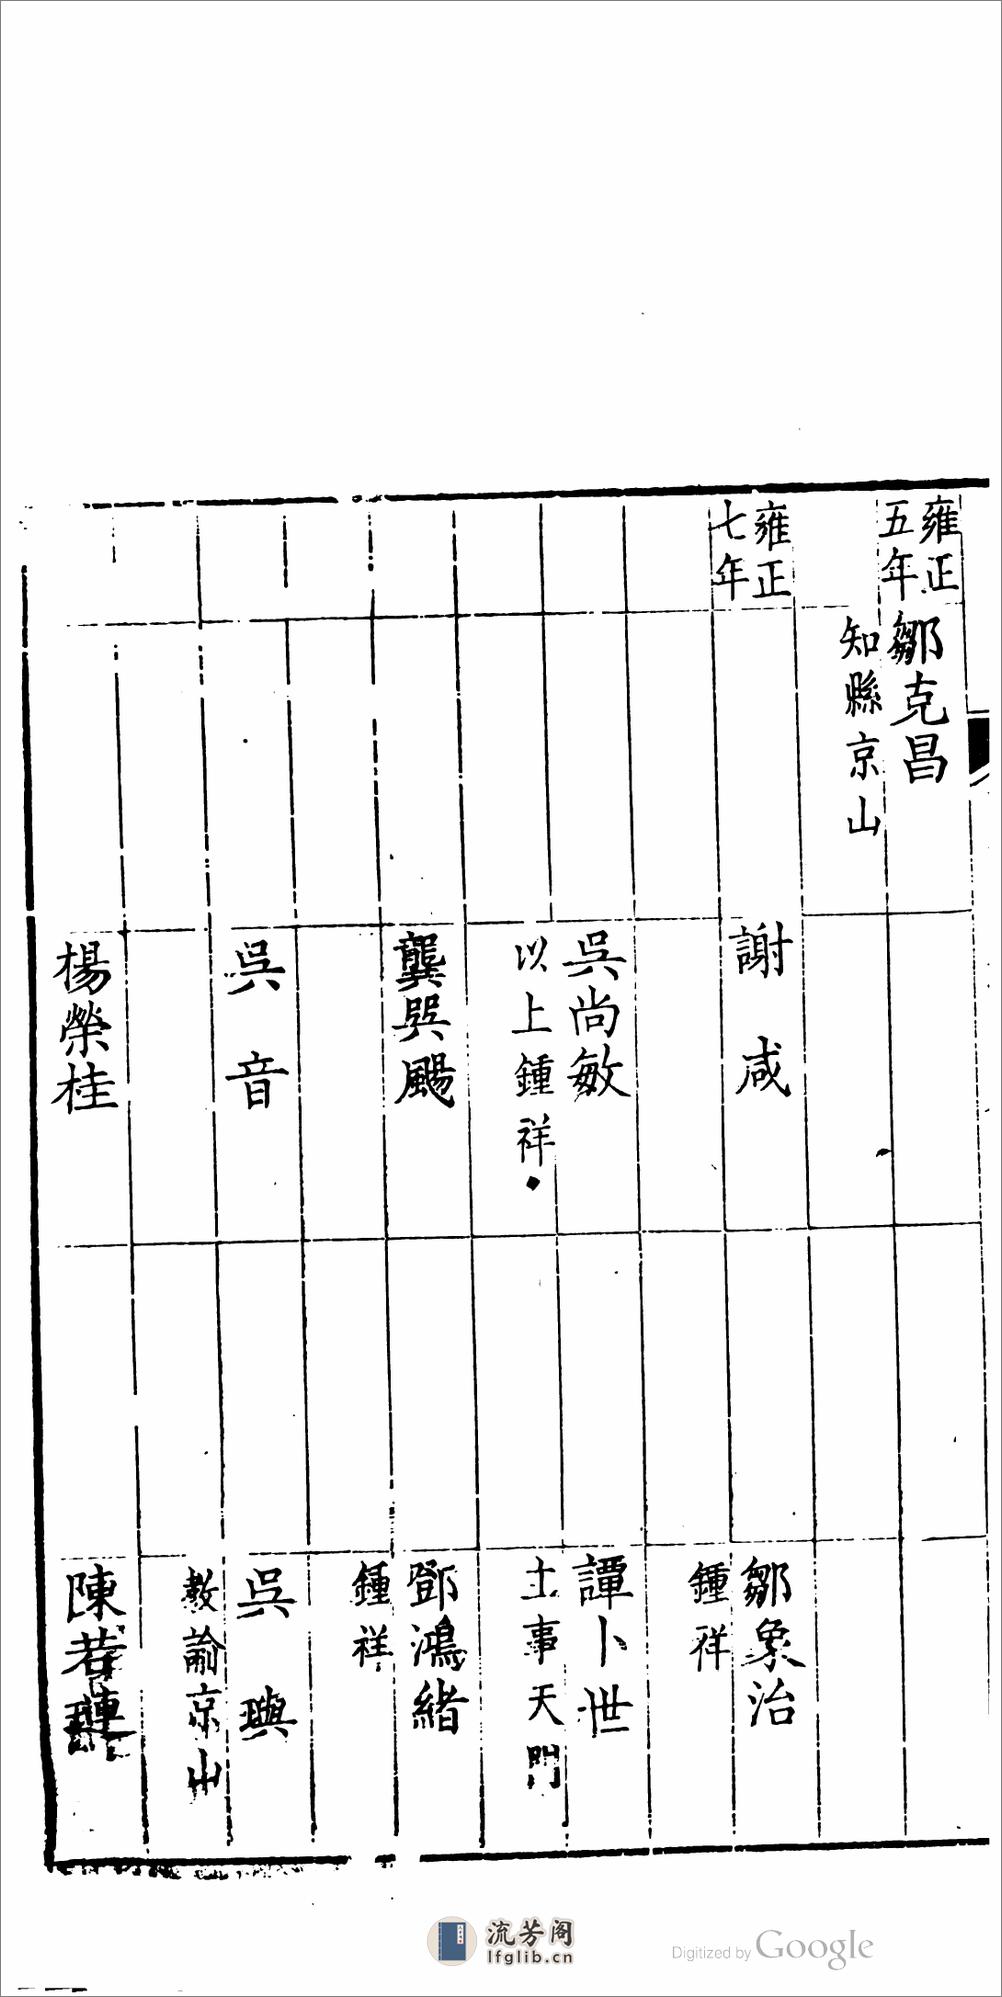 雍正
五年
鄒克昌
知縣京山
雍正
七年
謝咸
鄒象治
鍾祥
吳尚敏
以上鍾祥
譚卜世
士事天門
龔巽颺
鄧鴻緒
鍾祥
吳音
吳璵
教諭京山
楊榮桂
陳若璉
流芳阁
lfglib.cn
Digitized by Google